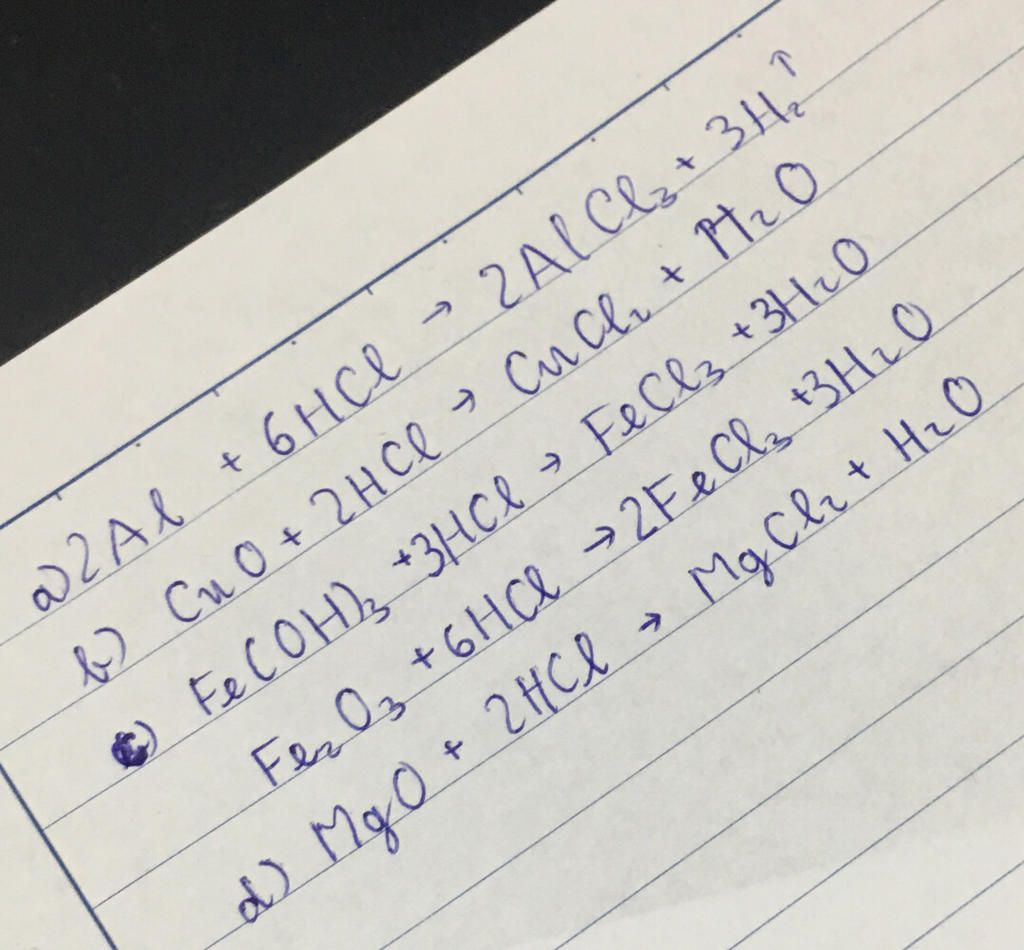 a) 2Al + 6HCl → 2AlCl₃ + 3H₂↑
b) CuO + 2HCl → CuCl₂ + H₂O
c) Fe(OH)₃ + 3HCl → FeCl₃ + 3H₂O
Fe₂O₃ + 6HCl → 2FeCl₃ + 3H₂O
d) MgO + 2HCl → MgCl₂ + H₂O